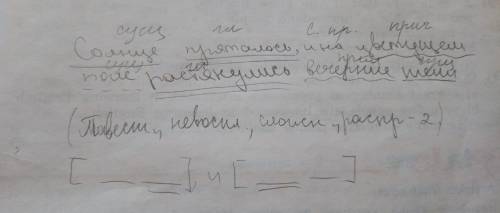 сущ гл с. пр. прич
Солнце пряталось, и на цветущем
сущ гл прил сущ
поле растянулись вечерние тени
(Повест., невоскл, сложн, распр-2)
[ ], и [ ]